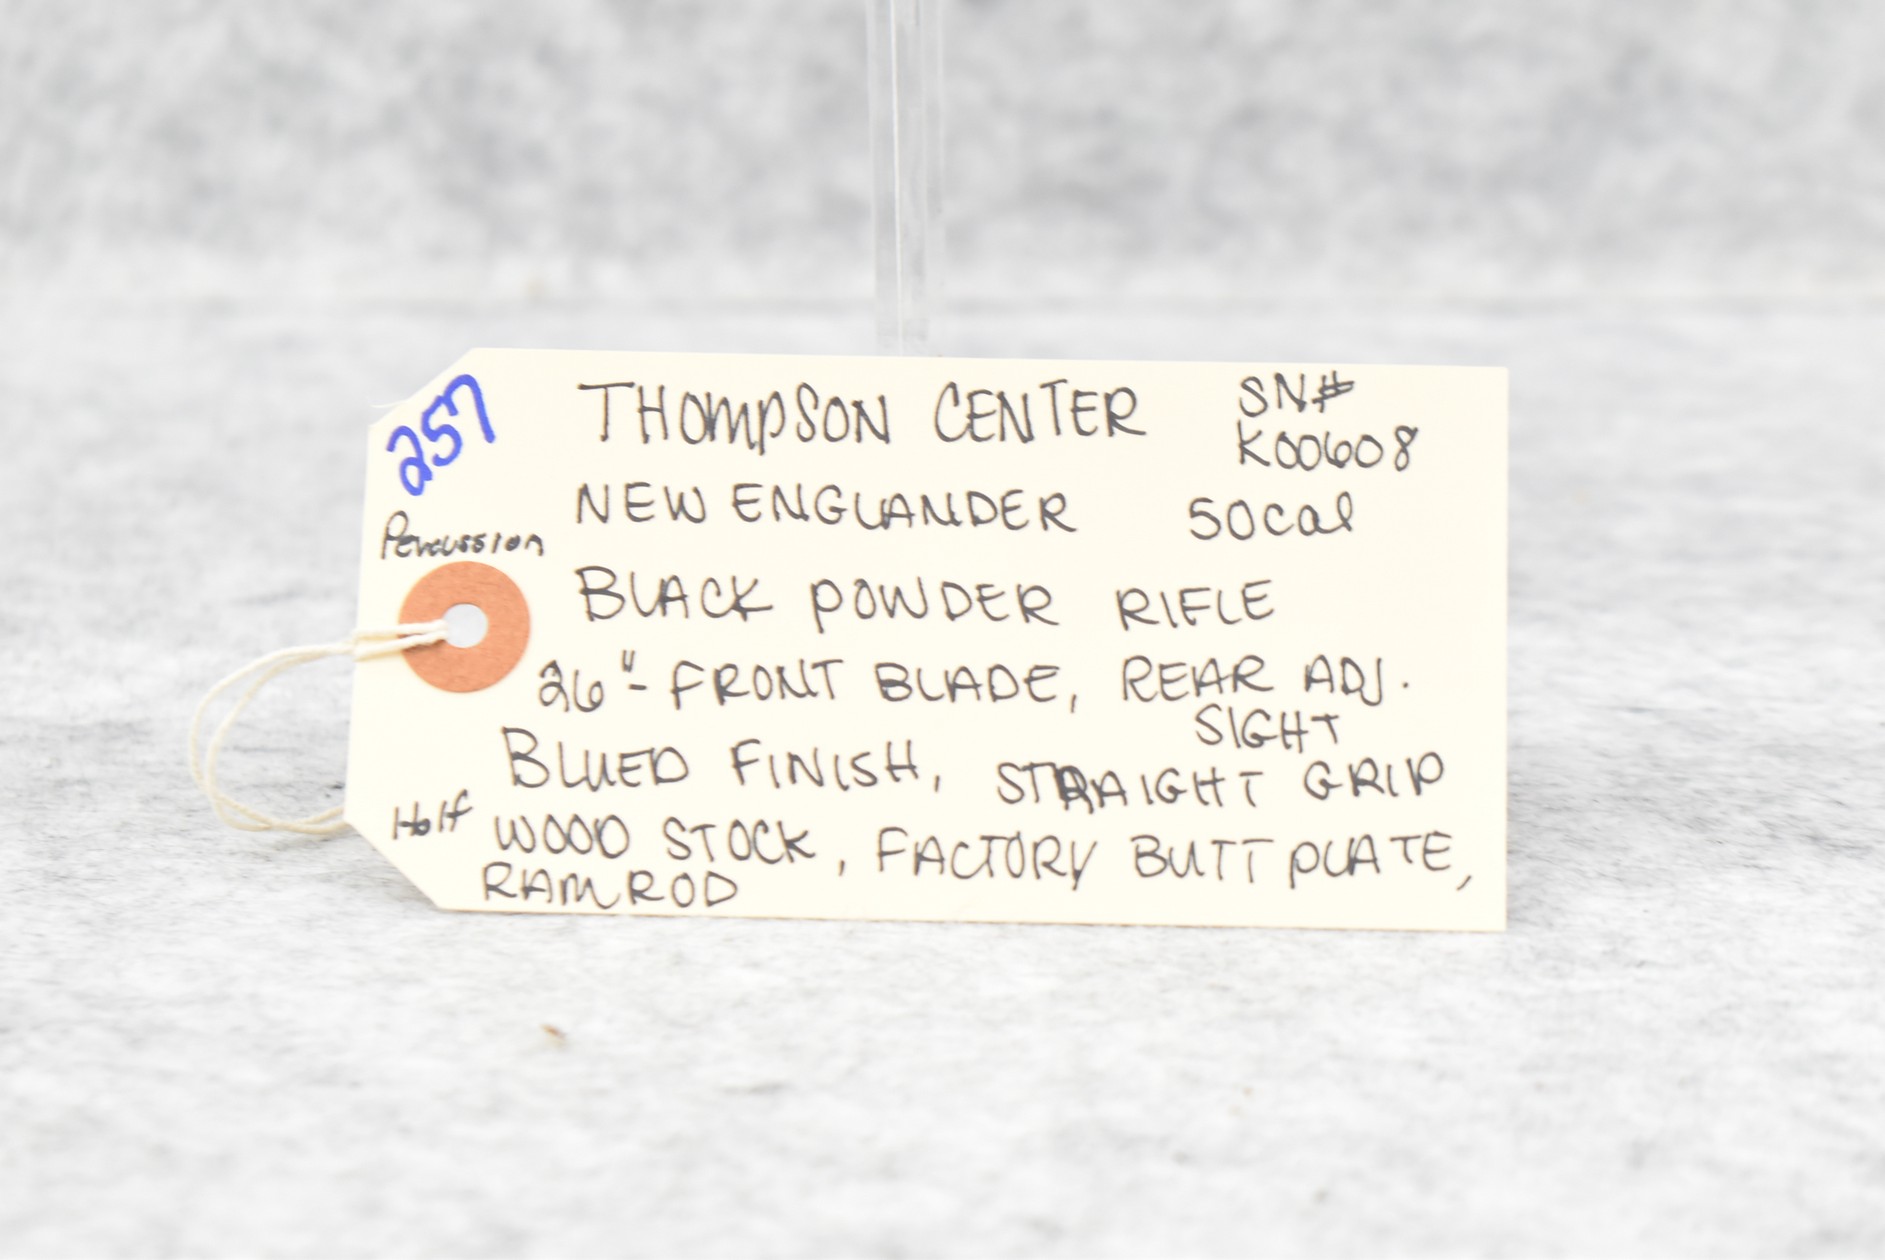 257
THOMPSON CENTER SN#
K00608
NEW ENGLANDER 50cal
Percussion
BLACK POWDER RIFLE
26"- FRONT BLADE, REAR ADJ.
SIGHT
BLUED FINISH, STRAIGHT GRIP
Half WOOD STOCK, FACTORY BUTT PLATE,
RAMROD